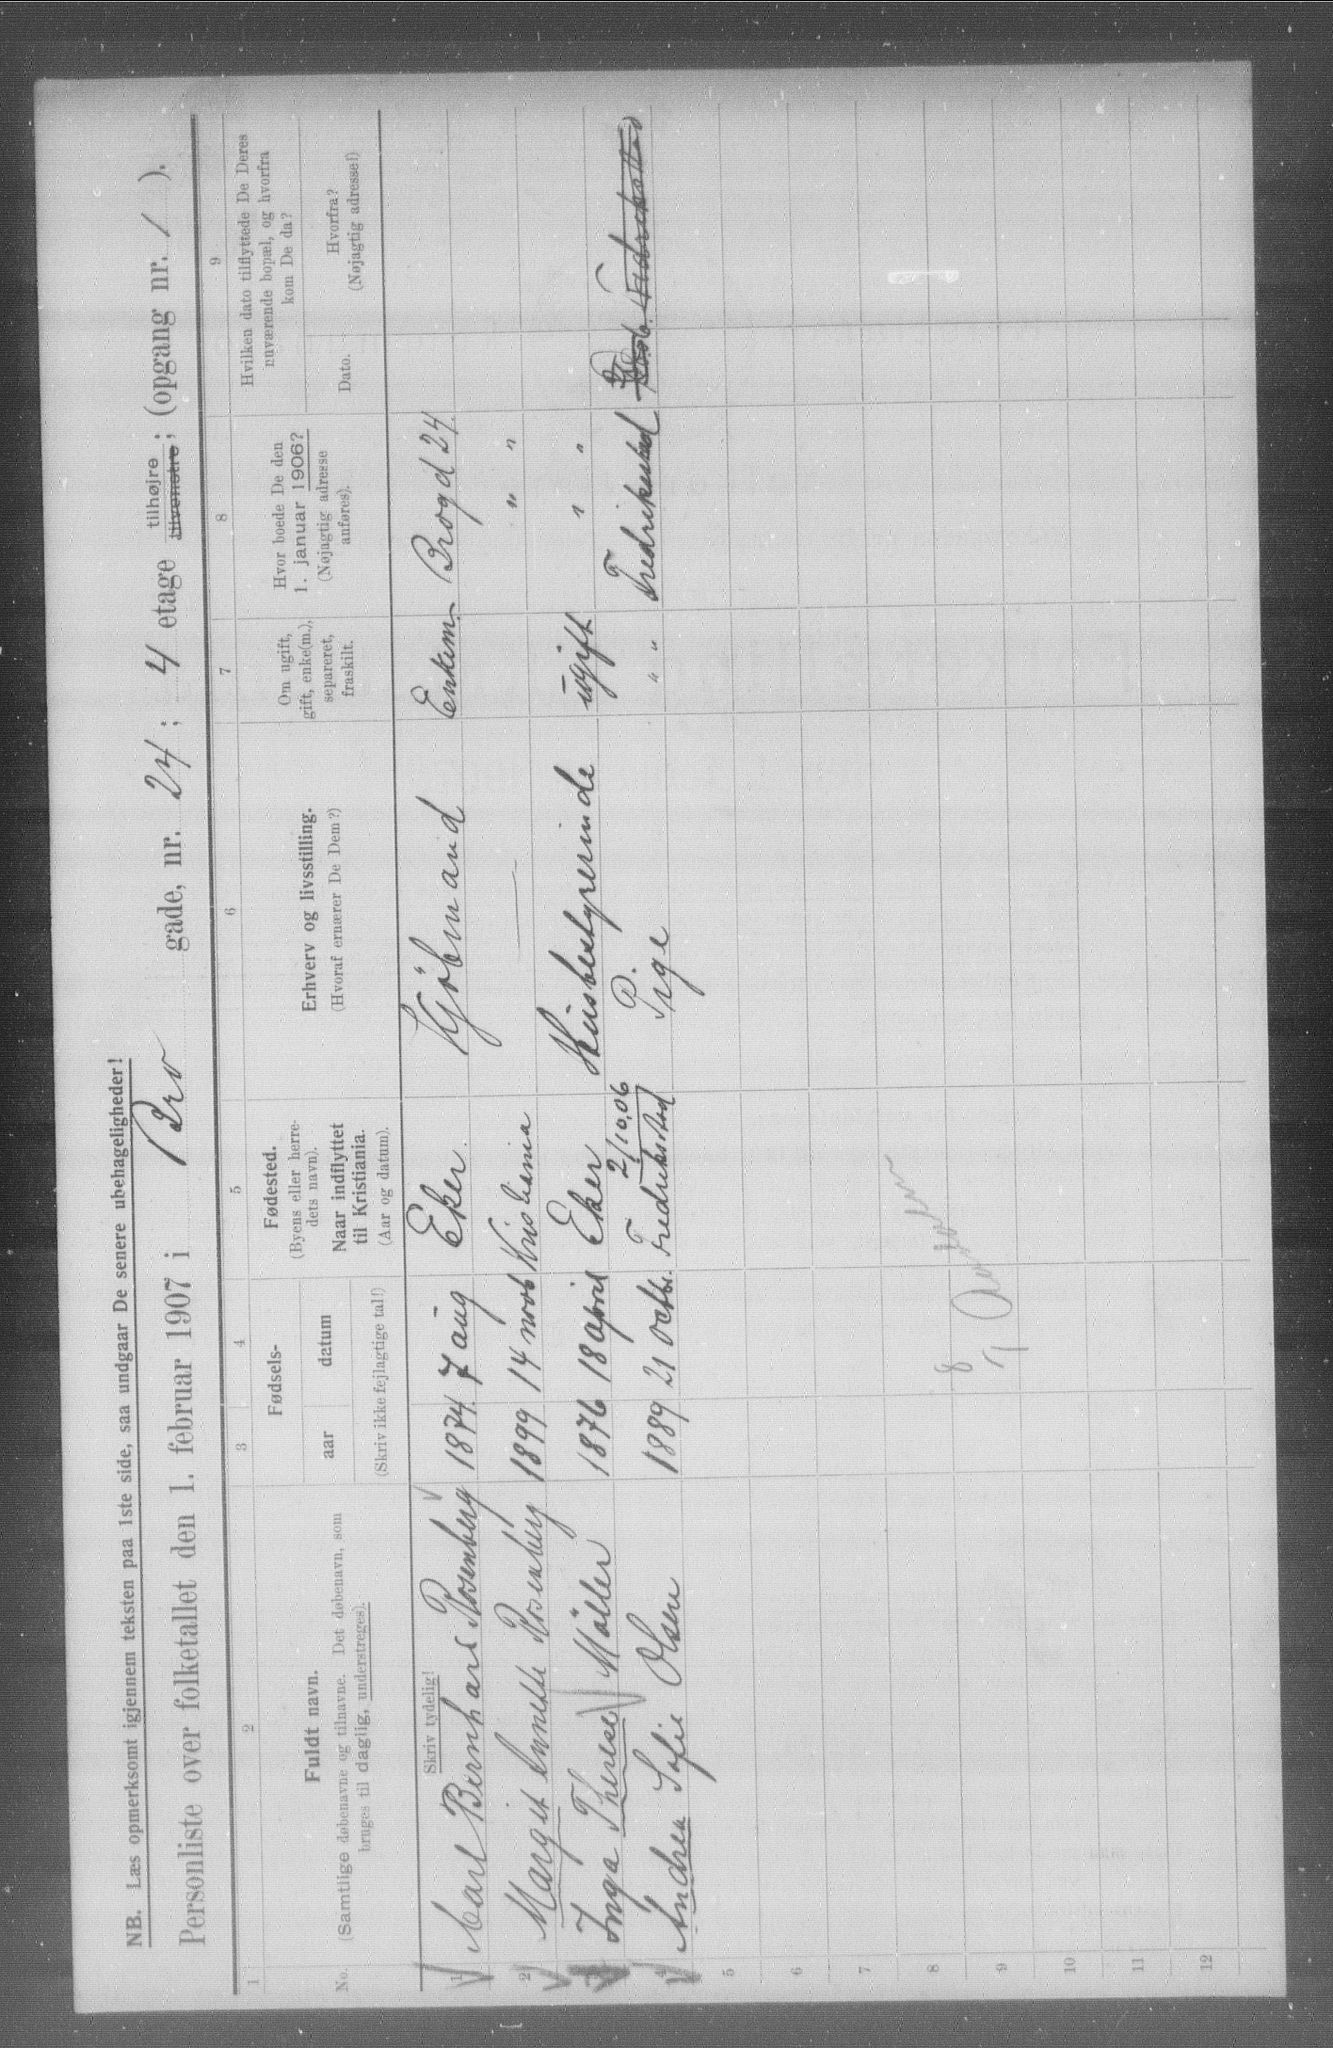 NB. Læs opmerksomt igjennem teksten paa 1ste side, saa undgaar De senere ubehageligheder!
Personliste over folketallet den 1. februar 1907 i Bro gade, nr. 24; 4 etage tilhøjre tilvenstre; (opgang nr. 1).
1 2 3 4 5 6 7 8 9
No.
Fuldt navn.
(Samtlige døbenavne og tilnavne. Det døbenavn, som
bruges til daglig, understreges).
Fødsels-
aar datum
(Skriv ikke fejlagtige tal!)
Fødested.
(Byens eller herre-
dets navn).
Naar indflyttet
til Kristiania.
(Aar og datum).
Erhverv og livsstilling.
(Hvoraf ernærer De Dem?)
Om ugift,
gift, enke(m.),
separeret,
fraskilt.
Hvor boede De den
1. januar 1906?
(Nøjagtig adresse
anføres).
Hvilken dato tilflyttede De Deres
nuværende bopæl, og hvorfra
kom De da?
Dato.
Hvorfra?
(Nøjagtig adresse!)
Skriv tydelig!
1 Carl Bernhard Rosenberg 1874 7 aug Eker. Kjøbmand Enkem. Brogd 24
2 Margit Annette Rosenberg 1899 14 novb Kristiania — " "
3 Inga Therese Møller 1876 18 april Eker Husbestyrerinde ugift " "
2/10.06
4 Andrea Sofie Olsen 1889 21 octbr. Fredrikstad P. Pige " " Fredrikstad Fredrikstad
5
6
7
8
9
10
11
12
8
7